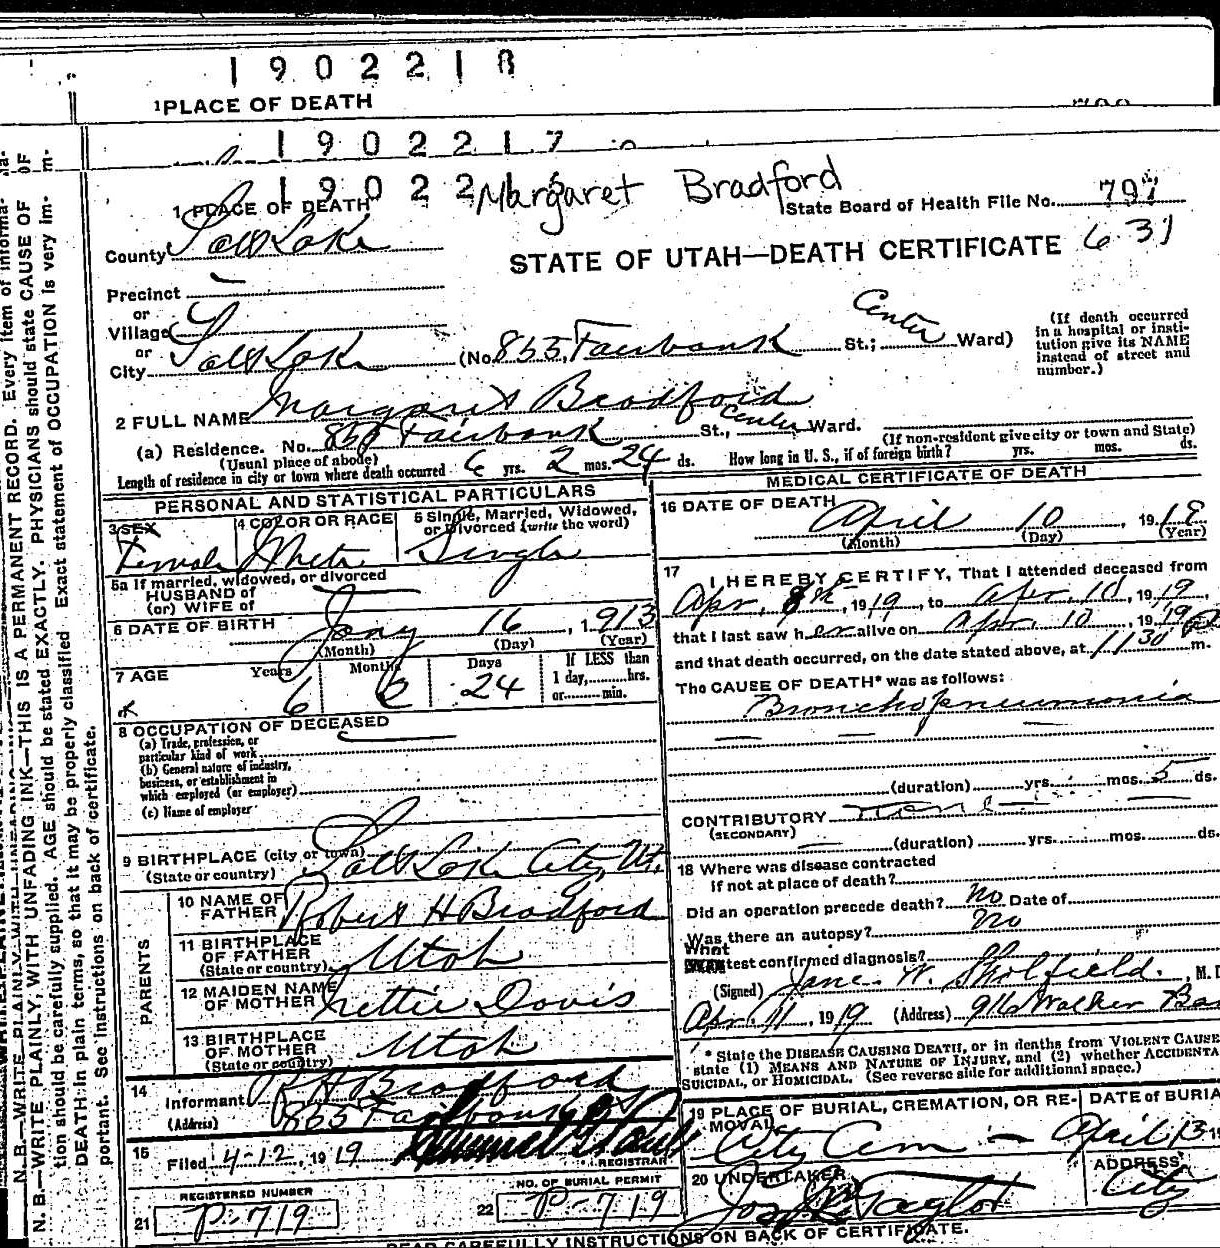 1902218
1 PLACE OF DEATH
1902217
19022
Margaret Bradford
1 PLACE OF DEATH
State Board of Health File No. 797
County Salt Lake
STATE OF UTAH—DEATH CERTIFICATE 631
Precinct
or
Village
or
City Salt Lake (No. 855 Fairbank St.; Center Ward)
(If death occurred in a hospital or institution give its NAME instead of street and number.)
2 FULL NAME Margaret Bradford
(a) Residence. No. 855 Fairbank St., Center Ward.
(Usual place of abode) (If non-resident give city or town and State)
Length of residence in city or town where death occurred 6 yrs. 2 mos. 24 ds. How long in U. S., if of foreign birth? yrs. mos. ds.
PERSONAL AND STATISTICAL PARTICULARS
3 SEX 4 COLOR OR RACE 5 Single, Married, Widowed, or Divorced (write the word)
Female White Single
5a If married, widowed, or divorced
HUSBAND of
(or) WIFE of
6 DATE OF BIRTH Jany 16, 1913
(Month) (Day) (Year)
7 AGE Years Months Days If LESS than
1 day, hrs.
or min.
6 24
8 OCCUPATION OF DECEASED
(a) Trade, profession, or particular kind of work
(b) General nature of industry, business, or establishment in which employed (or employer)
(c) Name of employer
9 BIRTHPLACE (city or town) Salt Lake City, Ut.
(State or country)
PARENTS
10 NAME OF FATHER Robert H Bradford
11 BIRTHPLACE OF FATHER (State or country) Utah
12 MAIDEN NAME OF MOTHER Nettie Davis
13 BIRTHPLACE OF MOTHER (State or country) Utah
14 Informant R H Bradford
(Address) 855 Fairbank
15 Filed 4-12, 1919
REGISTRAR
REGISTERED NUMBER
21 P-719
NO. OF BURIAL PERMIT
22 P-719
MEDICAL CERTIFICATE OF DEATH
16 DATE OF DEATH April 10, 1919
(Month) (Day) (Year)
17 I HEREBY CERTIFY, That I attended deceased from
Apr. 8th, 1919, to Apr. 10, 1919,
that I last saw her alive on Apr. 10, 1919
and that death occurred, on the date stated above, at 1130 P m.
The CAUSE OF DEATH* was as follows:
Bronchopneumonia
(duration) yrs. mos. 5 ds.
CONTRIBUTORY none
(SECONDARY)
(duration) yrs. mos. ds.
18 Where was disease contracted
if not at place of death?
Did an operation precede death? No Date of
Was there an autopsy? No
What test confirmed diagnosis?
(Signed) Jane W. Skolfield, M. D
Apr. 11, 1919 (Address) 916 Walker
* State the DISEASE CAUSING DEATH, or in deaths from VIOLENT CAUSE
state (1) MEANS AND NATURE OF INJURY, and (2) whether ACCIDENTA
SUICIDAL, or HOMICIDAL. (See reverse side for additional space.)
19 PLACE OF BURIAL, CREMATION, OR REMOVAL DATE of BURIA
City Cem April 13 19
20 UNDERTAKER ADDRESS
Jos Taylor City
READ CAREFULLY INSTRUCTIONS ON BACK OF CERTIFICATE.
N. B.—WRITE PLAINLY, WITH UNFADING INK—THIS IS A PERMANENT RECORD. Every item of information should be carefully supplied. AGE should be stated EXACTLY. PHYSICIANS should state CAUSE OF DEATH in plain terms, so that it may be properly classified. Exact statement of OCCUPATION is very important. See instructions on back of certificate.